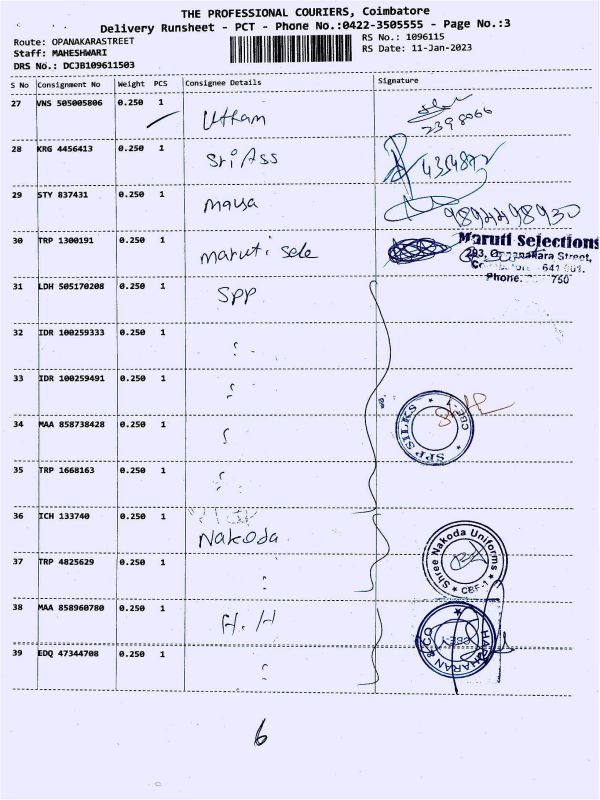 THE PROFESSIONAL COURIERS, Coimbatore
Delivery Runsheet - PCT - Phone No.:0422-3505555 - Page No.:3
Route: OPANAKARASTREET
RS No.: 1096115
Staff: MAHESHWARI
RS Date: 11-Jan-2023
DRS No.: DCJB109611503
S No Consignment No Weight PCS Consignee Details Signature
27 VNS 505005806 0.250 1 Uttam
2398066
28 KRG 4456413 0.250 1 Sri Ass
29 STY 837431 0.250 1 mausa 9894498930
30 TRP 1300191 0.250 1 maruti sele
Maruti Selections
Street,
641 001.
Phone. 750
31 LDH 505170208 0.250 1 SPP
32 IDR 100259333 0.250 1
33 IDR 100259491 0.250 1
34 MAA 858738428 0.250 1 SPP SILKS * CBE-1 *
35 TRP 1668163 0.250 1
36 ICH 133740 0.250 1 Nakoda
37 TRP 4825629 0.250 1 * Shree Nakoda Uniforms * CBE-1
38 MAA 858960780 0.250 1 H.H
39 EDQ 47344708 0.250 1
6